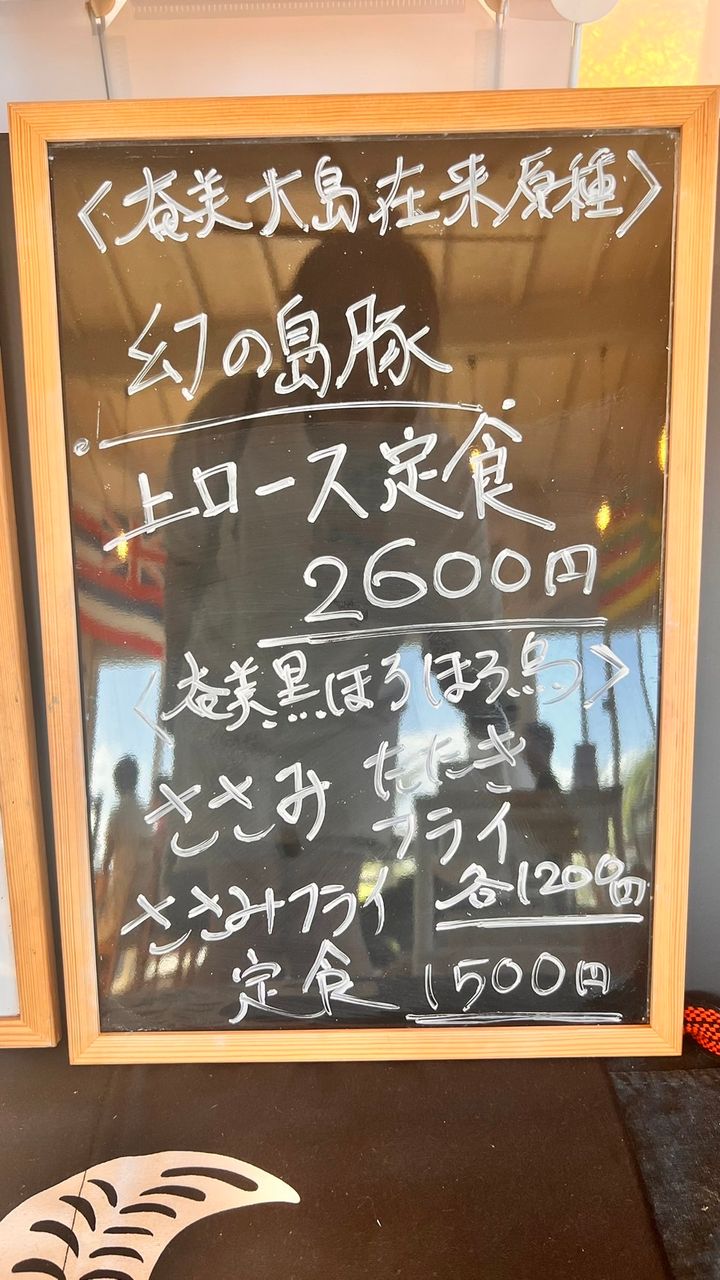 〈奄美大島在来原種〉
幻の島豚
上ロース定食
2600円
〈奄美黒ほろほろ鳥〉
ささみ たたき
フライ
各1200円
ささみフライ
定食 1500円